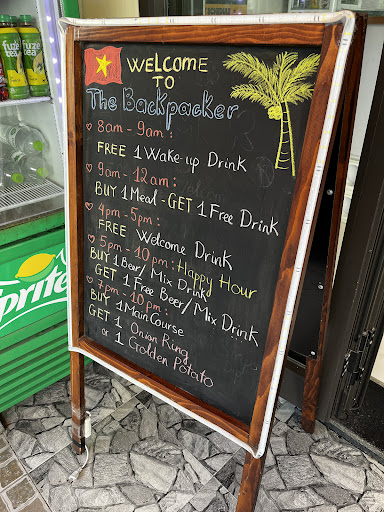 fuze tea
fuze tea
Sprite
WELCOME
TO
The Backpacker
8am - 9am :
FREE 1 Wake-up Drink
9am - 12am :
BUY 1 Meal - GET 1 Free Drink
4pm - 5pm :
FREE Welcome Drink
5pm - 10pm : Happy Hour
BUY 1 Beer / Mix Drink
GET 1 Free Beer / Mix Drink
7pm - 10pm :
BUY 1 Main Course
GET 1 Onion Ring
or 1 Golden Potato